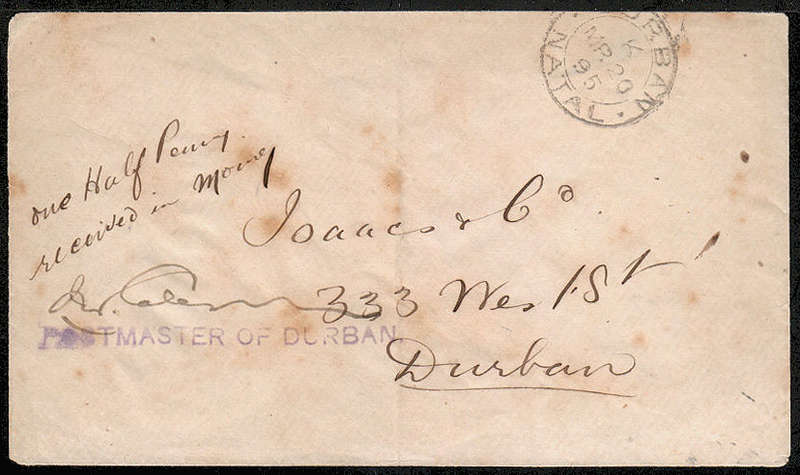 DURBAN
K
MR 20
95
NATAL
one Half Penny
received in money
Isaacs & Co
333 West St
POSTMASTER OF DURBAN
Durban